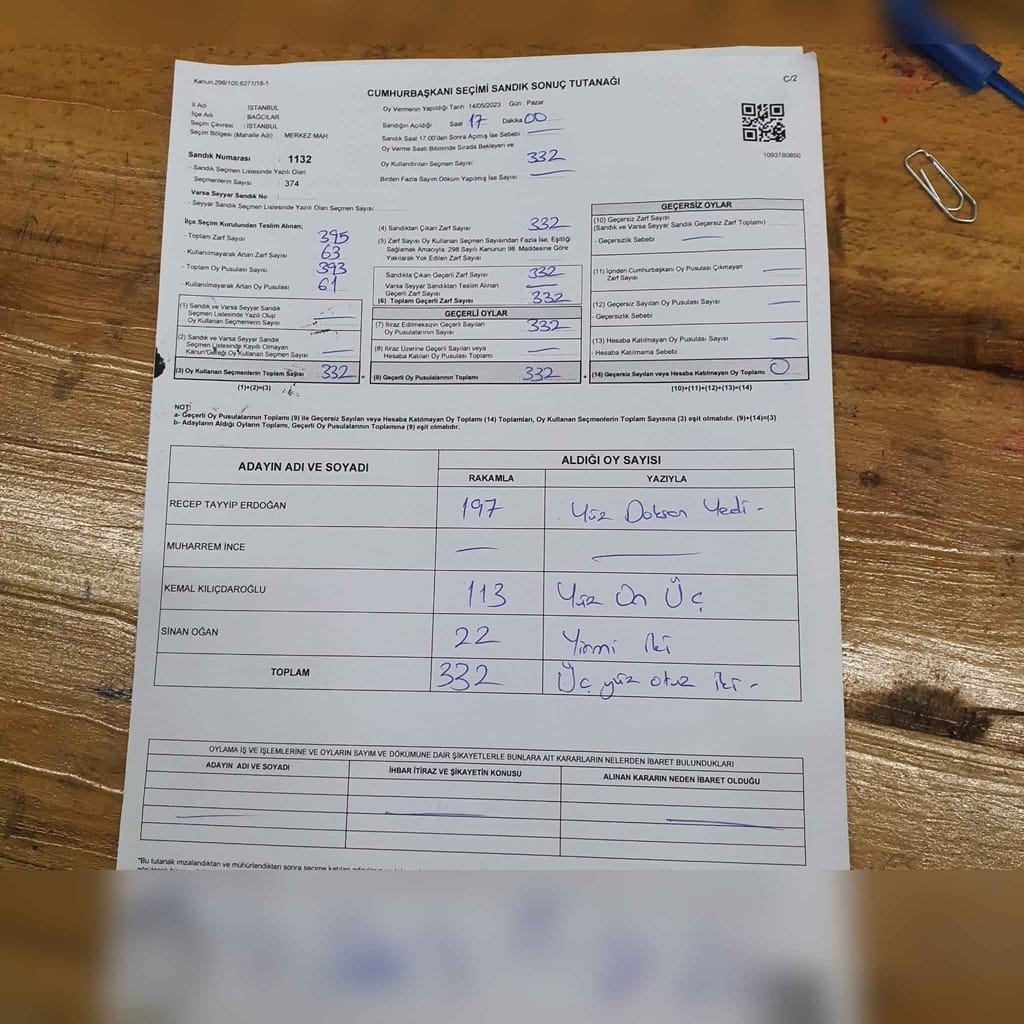 Kanun:298/105;6271/18-1
C/2
CUMHURBAŞKANI SEÇİMİ SANDIK SONUÇ TUTANAĞI
İl Adı İSTANBUL
İlçe Adı BAĞCILAR
Seçim Çevresi : İSTANBUL
Seçim Bölgesi (Mahalle Adı) MERKEZ MAH.
Sandık Numarası : 1132
- Sandık Seçmen Listesinde Yazılı Olan
Seçmenlerin Sayısı : 374
Varsa Seyyar Sandık No :
- Seyyar Sandık Seçmen Listesinde Yazılı Olan Seçmen Sayısı:
Oy Vermenin Yapıldığı Tarih 14/05/2023 Gün Pazar
Sandığın Açıldığı Saat 17 Dakika 00
Sandık Saat 17.00'den Sonra Açılmış İse Sebebi
Oy Verme Saati Bitiminde Sırada Bekleyen ve
Oy Kullandırılan Seçmen Sayısı 332
Birden Fazla Sayım Döküm Yapılmış İse Sayısı
1093780850
İlçe Seçim Kurulundan Teslim Alınan;
- Toplam Zarf Sayısı 395
- Kullanılmayarak Artan Zarf Sayısı 63
- Toplam Oy Pusulası Sayısı 393
- Kullanılmayarak Artan Oy Pusulası Sayısı 61
(1) Sandık ve Varsa Seyyar Sandık
Seçmen Listesinde Yazılı Olup
Oy Kullanan Seçmenlerin Sayısı
(2) Sandık ve Varsa Seyyar Sandık
Seçmen Listesinde Kaydı Olmayan
Kanun Gereği Oy Kullanan Seçmen Sayısı
(3) Oy Kullanan Seçmenlerin Toplam Sayısı 332 =
(1)+(2)=(3)
(4) Sandıktan Çıkan Zarf Sayısı 332
(5) Zarf Sayısı Oy Kullanan Seçmen Sayısından Fazla İse, Eşitliği
Sağlamak Amacıyla, 298 Sayılı Kanunun 98. Maddesine Göre
Yakılarak Yok Edilen Zarf Sayısı
Sandıkta Çıkan Geçerli Zarf Sayısı 332
Varsa Seyyar Sandıktan Teslim Alınan
Geçerli Zarf Sayısı
(6) Toplam Geçerli Zarf Sayısı 332
GEÇERLİ OYLAR
(7) İtiraz Edilmeksizin Geçerli Sayılan
Oy Pusulalarının Sayısı 332
(8) İtiraz Üzerine Geçerli Sayılan veya
Hesaba Katılan Oy Pusulası Toplamı
(9) Geçerli Oy Pusulalarının Toplamı 332 +
GEÇERSİZ OYLAR
(10) Geçersiz Zarf Sayısı
(Sandık ve Varsa Seyyar Sandık Geçersiz Zarf Toplamı)
- Geçersizlik Sebebi
(11) İçinden Cumhurbaşkanı Oy Pusulası Çıkmayan
Zarf Sayısı
(12) Geçersiz Sayılan Oy Pusulası Sayısı
- Geçersizlik Sebebi
(13) Hesaba Katılmayan Oy Pusulası Sayısı
- Hesaba Katılmama Sebebi
(14) Geçersiz Sayılan veya Hesaba Katılmayan Oy Toplamı 0
(10)+(11)+(12)+(13)=(14)
NOT:
a- Geçerli Oy Pusulalarının Toplamı (9) ile Geçersiz Sayılan veya Hesaba Katılmayan Oy Toplamı (14) Toplamları, Oy Kullanan Seçmenlerin Toplam Sayısına (3) eşit olmalıdır. (9)+(14)=(3)
b- Adayların Aldığı Oyların Toplamı, Geçerli Oy Pusulalarının Toplamına (9) eşit olmalıdır.
ADAYIN ADI VE SOYADI ALDIĞI OY SAYISI
RAKAMLA YAZIYLA
RECEP TAYYİP ERDOĞAN 197 Yüz Doksan Yedi -
MUHARREM İNCE
KEMAL KILIÇDAROĞLU 113 Yüz On Üç
SİNAN OĞAN 22 Yirmi iki
TOPLAM 332 Üç yüz otuz iki -
OYLAMA İŞ VE İŞLEMLERİNE VE OYLARIN SAYIM VE DÖKÜMÜNE DAİR ŞİKAYETLERLE BUNLARA AİT KARARLARIN NELERDEN İBARET BULUNDUKLARI
ADAYIN ADI VE SOYADI İHBAR İTİRAZ VE ŞİKAYETİN KONUSU ALINAN KARARIN NEDEN İBARET OLDUĞU
"Bu tutanak imzalandıktan ve mühürlendikten sonra seçime katılan